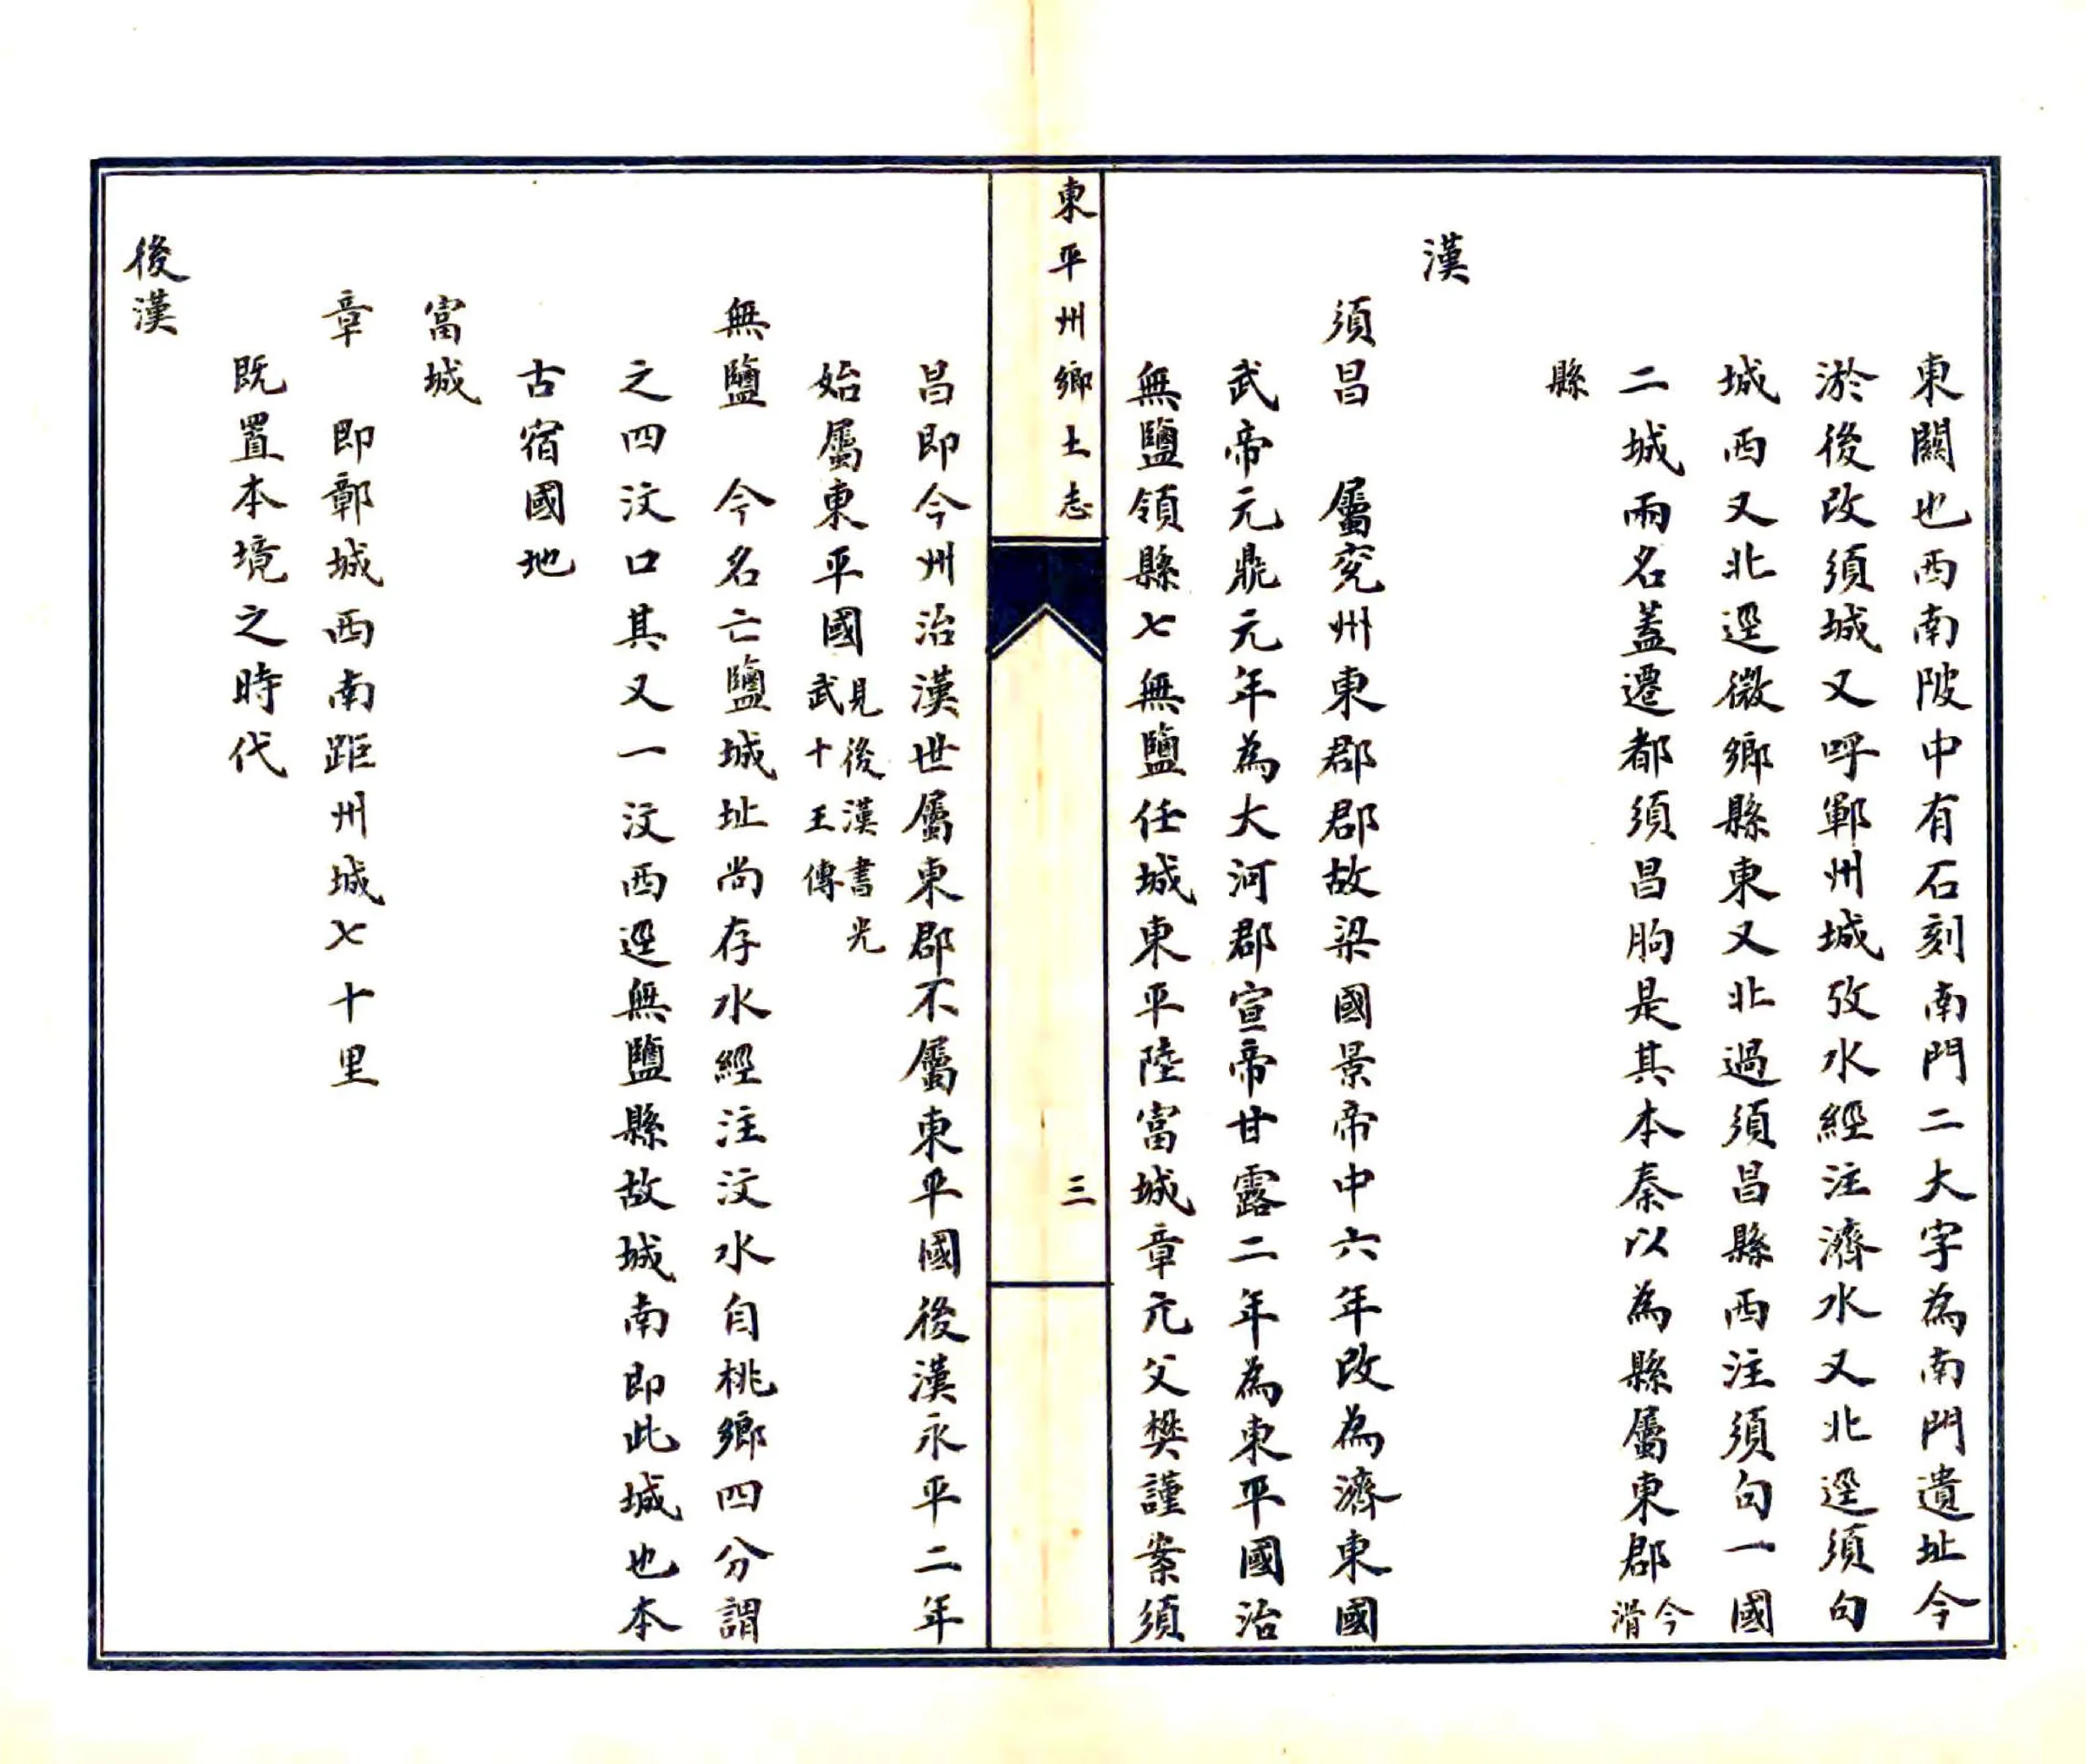 東關也西南陂中有石刻南門二大字為南門遺址今
淤後改須城又呼鄆州城攷水經注濟水又北逕須句
城西又北逕微鄉縣東又北過須昌縣西注須句一國
二城兩名蓋遷都須昌朐是其本秦以為縣屬東郡今滑
縣
漢
須昌 屬兖州東郡郡故梁國景帝中六年改為濟東國
武帝元鼎元年為大河郡宣帝甘露二年為東平國治
無鹽領縣七無鹽任城東平陸富城章亢父樊謹案須
東平州鄉土志
三
昌即今州治漢世屬東郡不屬東平國後漢永平二年
始屬東平國見後漢書光武十王傳
無鹽 今名亡鹽城址尚存水經注汶水自桃鄉四分謂
之四汶口其又一汶西逕無鹽縣故城南即此城也本
古宿國地
富城
章 即鄣城西南距州城七十里
既置本境之時代
後漢